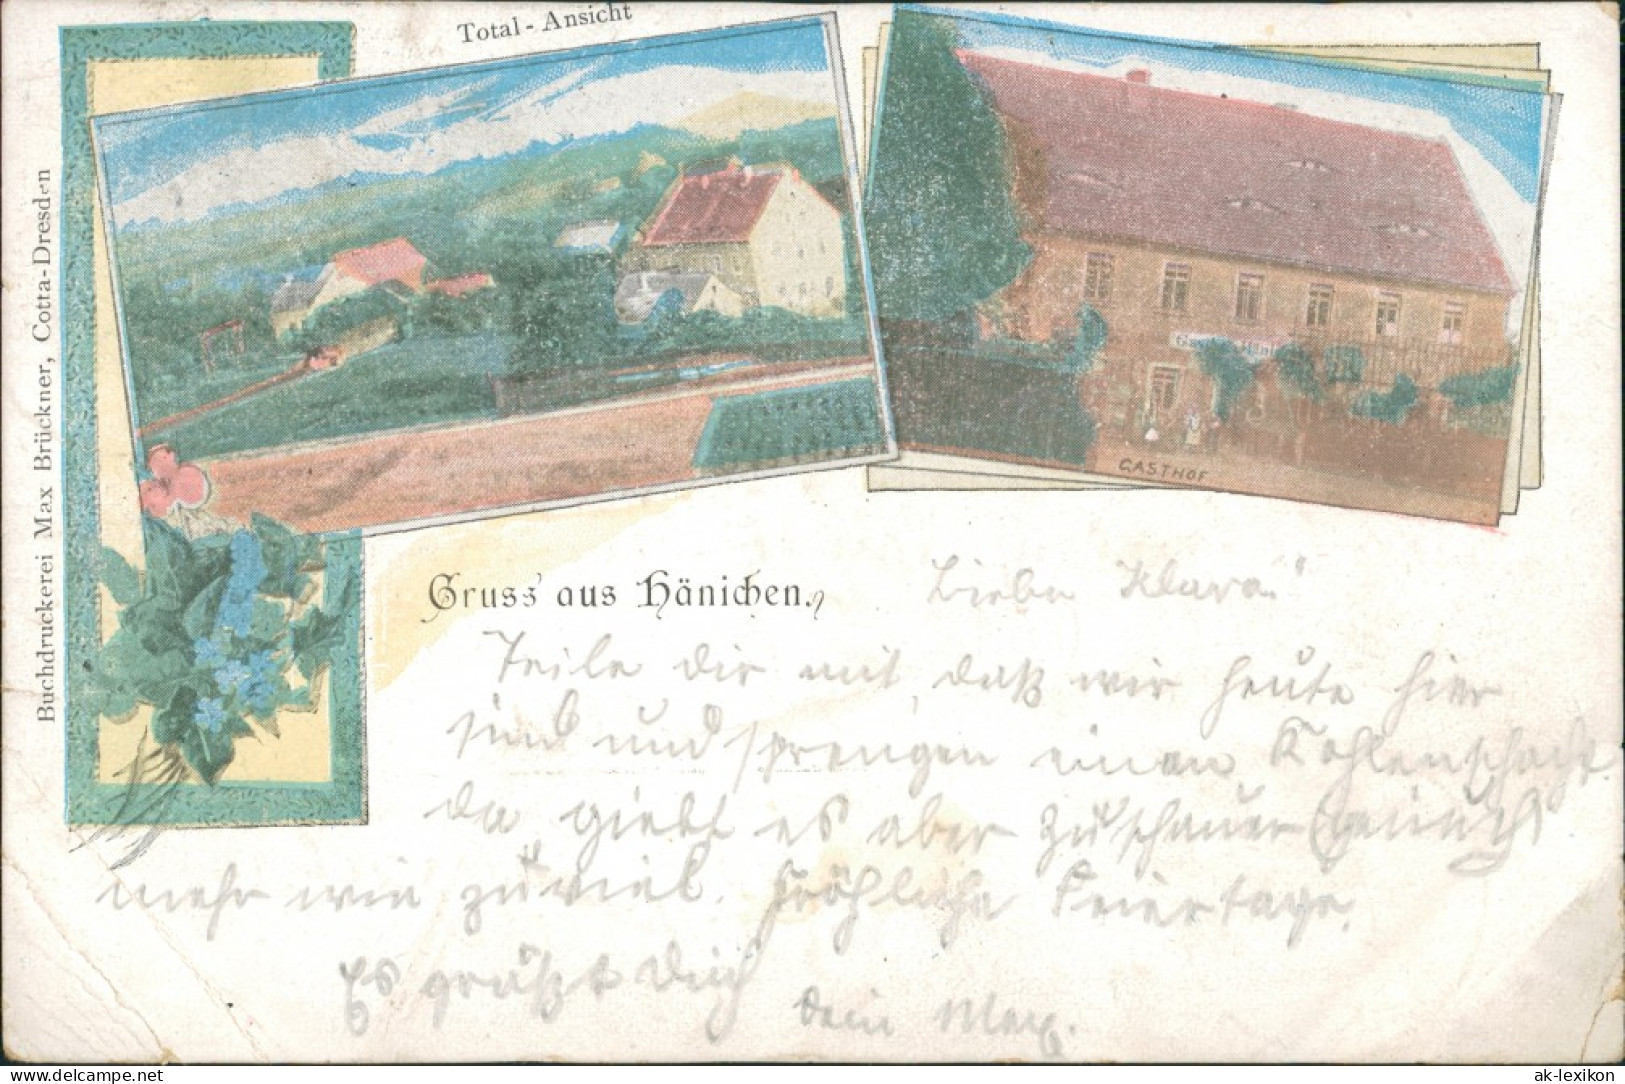 Total-Ansicht
GASTHOF
Buchdruckerei Max Brückner, Cotta-Dresden
Gruss aus Hänichen.
Liebe Klara!
Teile dir mit, daß wir heute hier
sind und sprengen einen Kohlenschacht.
da giebt es aber Zuschauer
mehr wie zuviel. Fröhliche Feiertage.
Es grüßt Dich
Dein Max.
ak-lexikon
www.delcampe.net